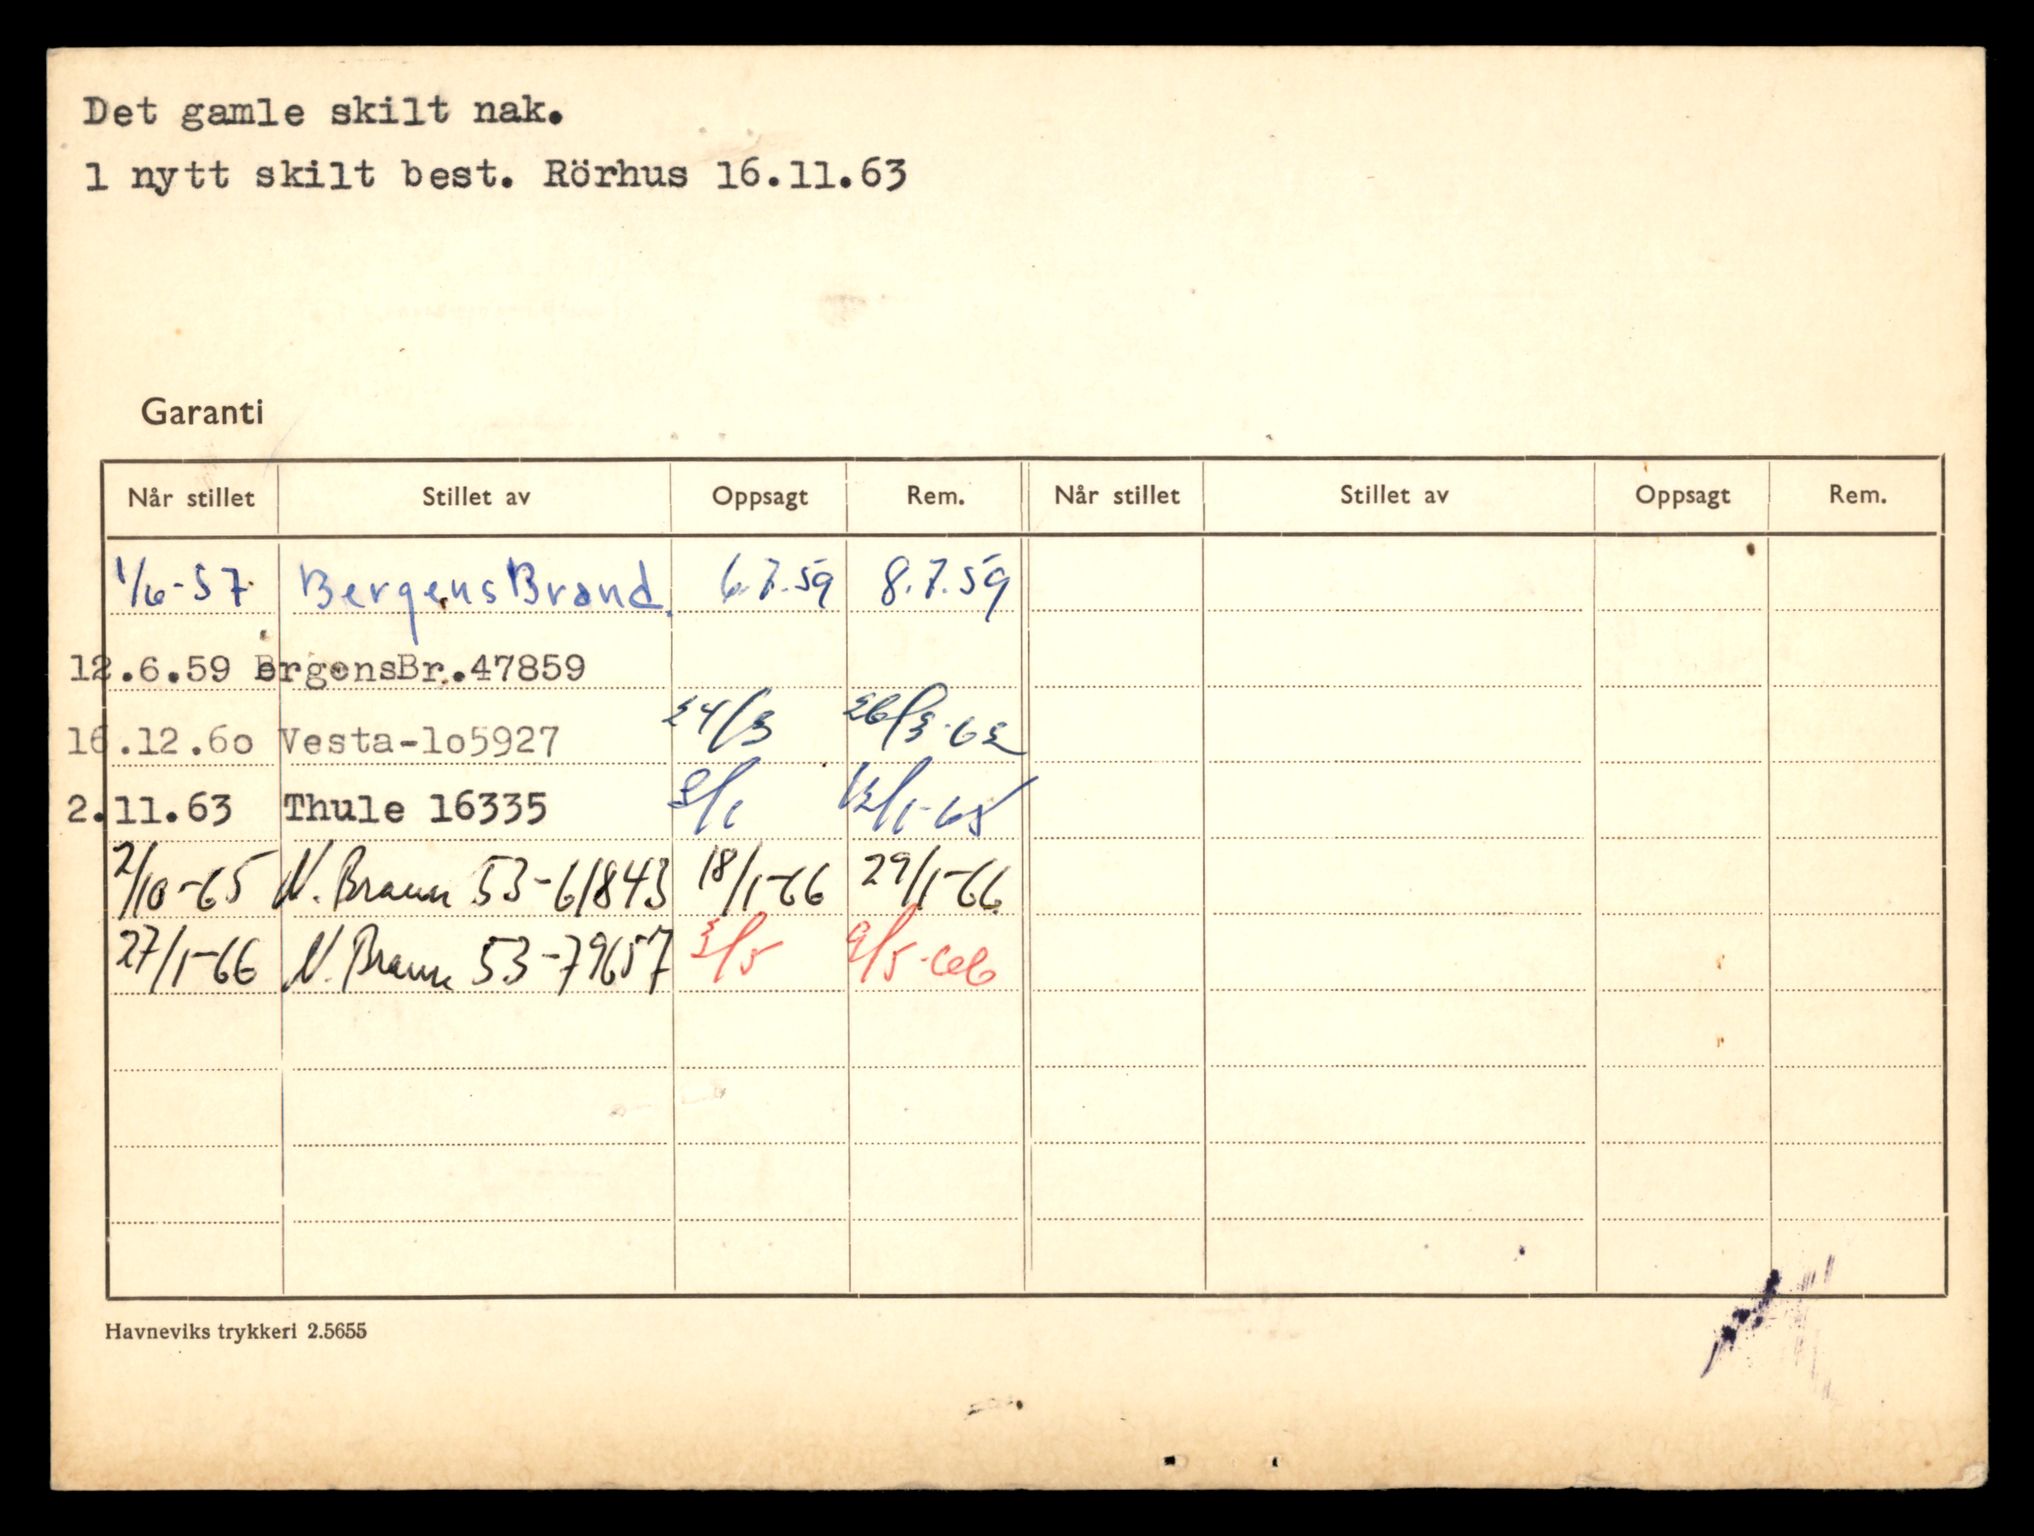 Det gamle skilt nak.
1 nytt skilt best. Rörhus 16.11.63
Garanti
Når stillet Stillet av Oppsagt Rem. Når stillet Stillet av Oppsagt Rem.
1/6-57 Bergens Brand. 6.7.59 8.7.59
12.6.59 BrgensBr.47859
16.12.6o Vesta-1o5927 24/3 26/3-62
2.11.63 Thule 16335 8/1 12/1-65
2/10-65 N. Brann 53-61843 18/1-66 29/1-66
27/1-66 N. Brann 53-79657 3/5 9/5-66
Havneviks trykkeri 2.5655